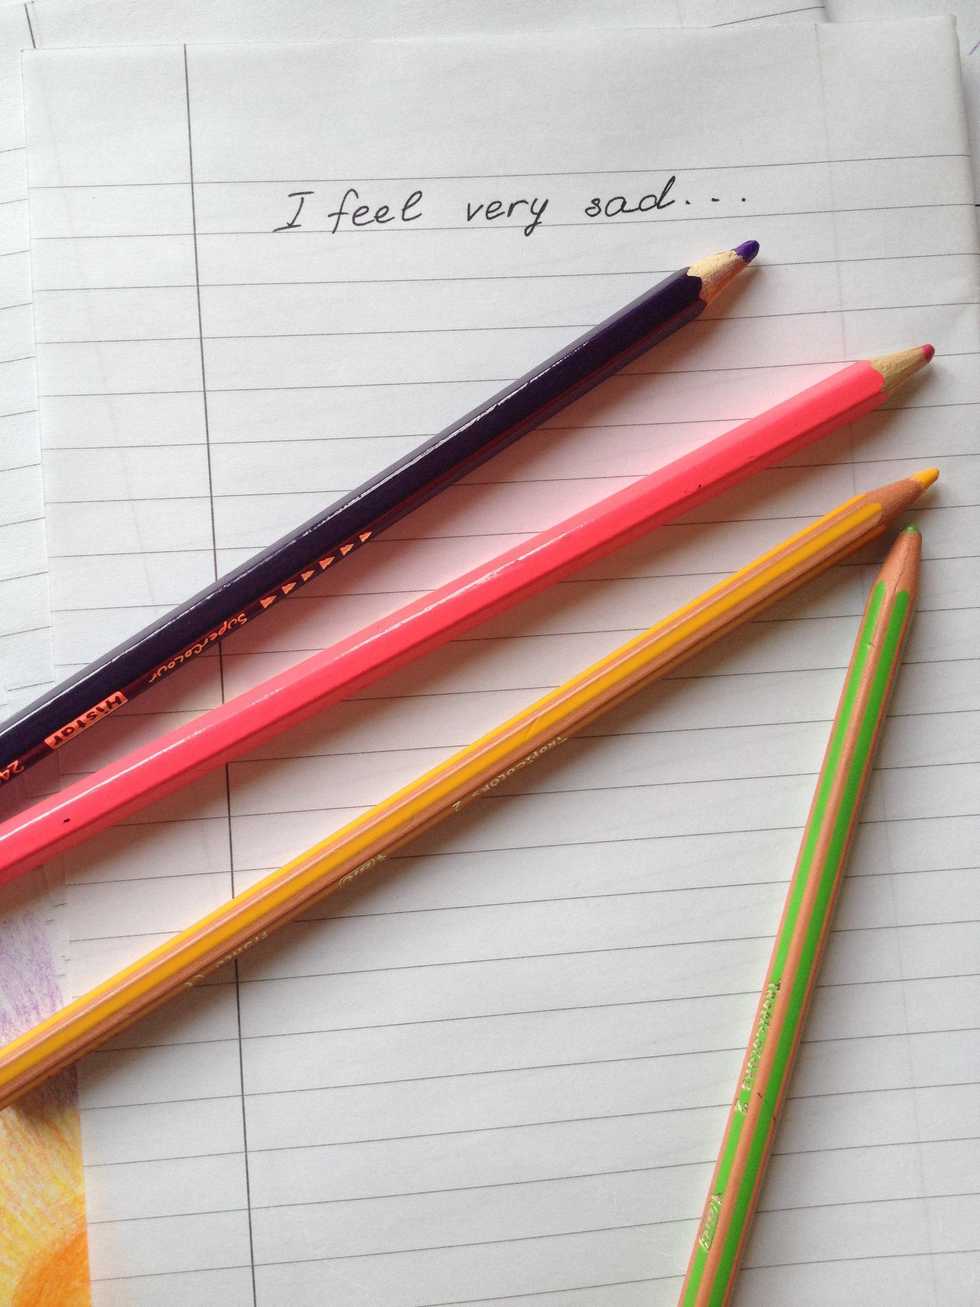 I feel very sad...
SuperColour
Histar
24
Tropicolors 2